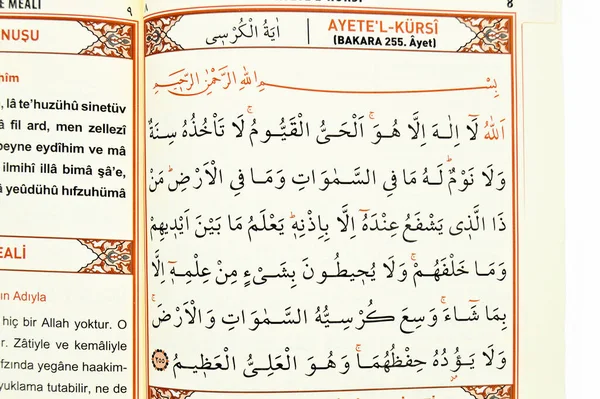 E MEALİ
٩
٨
8
NUŞU
اٰيَةُ الْكُرْسِي
AYETE'L-KÜRSÎ
(BAKARA 255. Âyet)
hîm
بِسْمِ اللّٰهِ الرَّحْمٰنِ الرَّحِيمِ
, lâ te'huzühû sinetüv
اَللّٰهُ لَٓا اِلٰهَ اِلَّا هُوَۚ اَلْحَيُّ الْقَيُّومُۚ لَا تَأْخُذُهُ سِنَةٌ
â fil ard, men zellezî
وَلَا نَوْمٌۜ لَهُ مَا فِي السَّمٰوَاتِ وَمَا فِي الْاَرْضِۜ مَنْ
beyne eydîhim ve mâ
ذَا الَّذ۪ي يَشْفَعُ عِنْدَهُٓ اِلَّا بِاِذْنِه۪ۜ يَعْلَمُ مَا بَيْنَ اَيْد۪يهِمْ
ilmihî illâ bimâ şâ'e,
وَمَا خَلْفَهُمْۚ وَلَا يُح۪يطُونَ بِشَيْءٍ مِنْ عِلْمِه۪ٓ اِلَّا
â yeûdühû hıfzuhümâ
بِمَا شَٓاءَۚ وَسِعَ كُرْسِيُّهُ السَّمٰوَاتِ وَالْاَرْضَۚ
وَلَا يَؤُ۫دُهُ حِفْظُهُمَاۚ وَهُوَ الْعَلِيُّ الْعَظ۪يمُ ٢٥٥
EALİ
ın Adıyla
hiç bir Allah yoktur. O
r. Zâtiyle ve kemâliyle
fzında yegâne haakim-
yuklama tutabilir, ne de